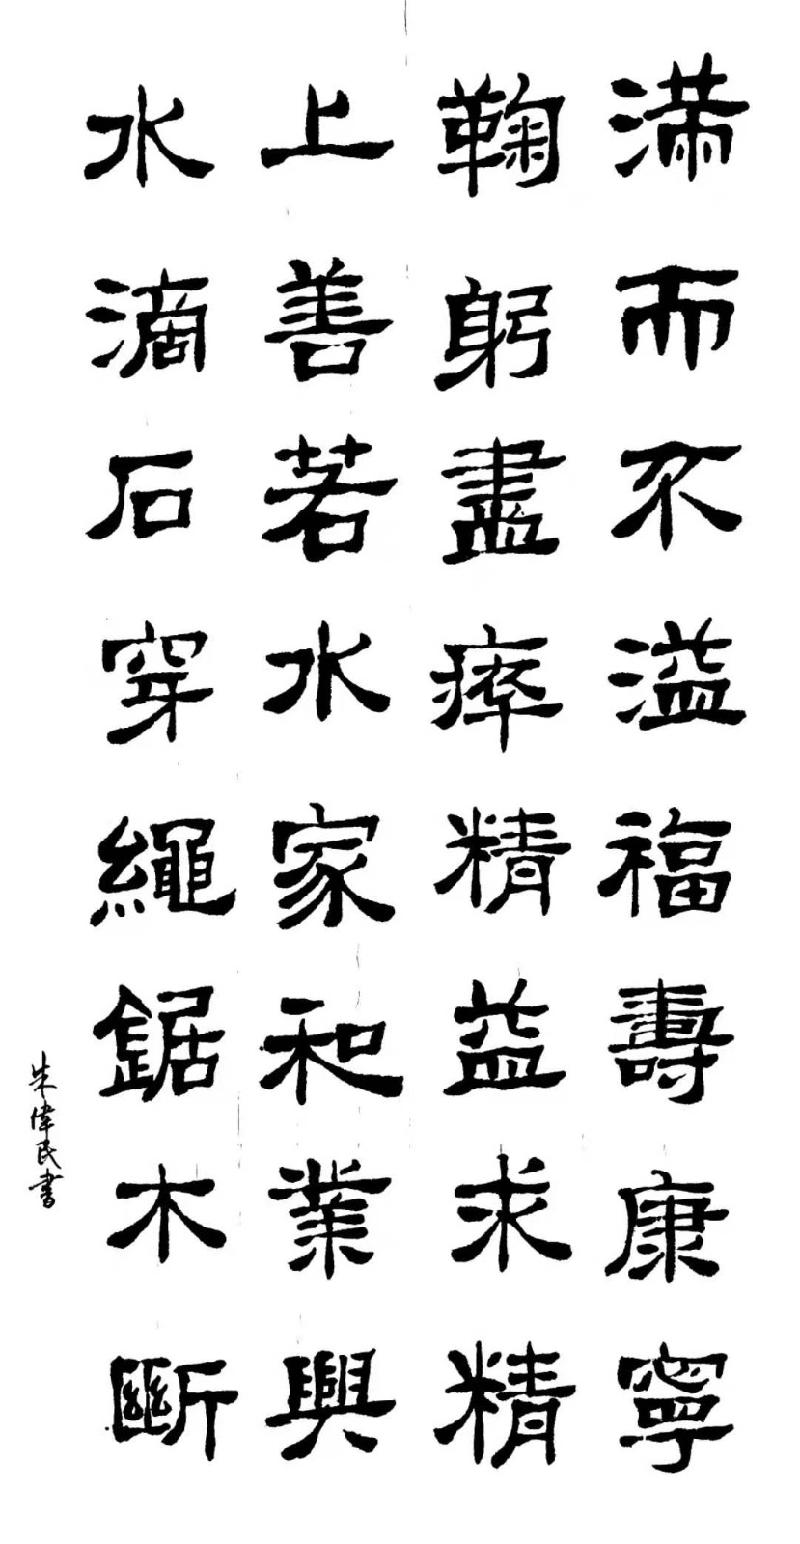 滿而不溢福壽康寧
鞠躬盡瘁精益求精
上善若水家和業興
水滴石穿繩鋸木斷
朱偉民書